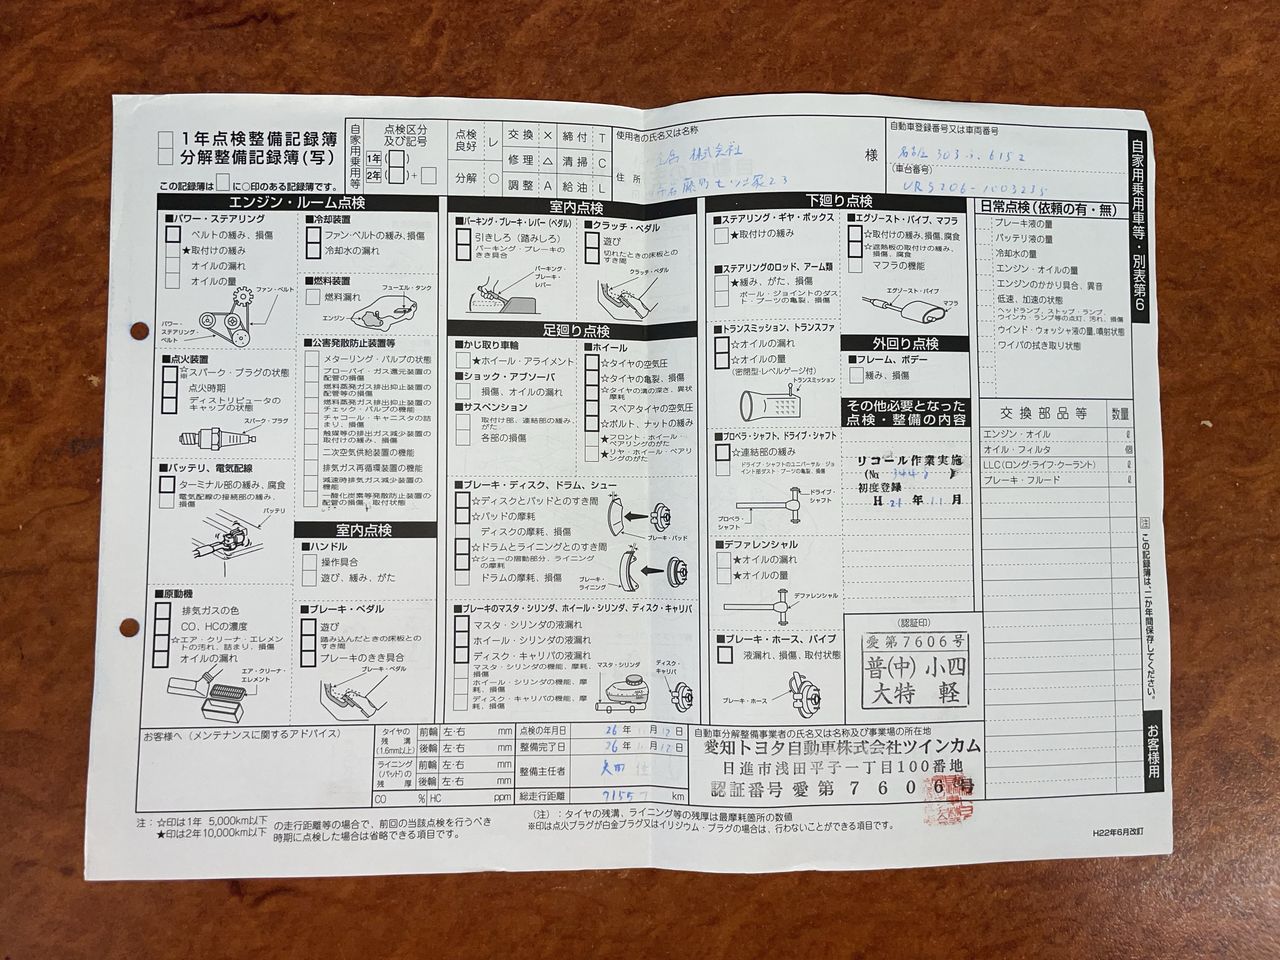 1年点検整備記録簿
分解整備記録簿(写)
この記録簿は に○印のある記録簿です。
自家用乗用等
点検区分及び記号
1年( )
2年( )+
点検良好 レ 交換 × 締付 T
修理 △ 清掃 C
分解 ○ 調整 A 給油 L
使用者の氏名又は名称
株式会社
様
住所
自動車登録番号又は車両番号
名古屋 303 6152
(車台番号)
URS206-1003235
自家用乗用車等・別表第6
エンジン・ルーム点検
■パワー・ステアリング
ベルトの緩み、損傷
★取付けの緩み
オイルの漏れ
オイルの量
ファン・ベルト
パワー・ステアリング・ベルト
■点火装置
☆スパーク・プラグの状態
点火時期
ディストリビュータのキャップの状態
スパーク・プラグ
■バッテリ、電気配線
ターミナル部の緩み、腐食
電気配線の接続部の緩み、損傷
バッテリ
■原動機
排気ガスの色
CO、HCの濃度
☆エア・クリーナ・エレメントの汚れ、詰まり、損傷
オイルの漏れ
エア・クリーナ・エレメント
■冷却装置
ファン・ベルトの緩み、損傷
冷却水の漏れ
■燃料装置
燃料漏れ
フューエル・タンク
エンジン
■公害発散防止装置等
メターリング・バルブの状態
ブローバイ・ガス還元装置の配管の損傷
燃料蒸発ガス排出抑止装置の配管等の損傷
燃料蒸発ガス排出抑止装置のチェック・バルブの機能
チャコール・キャニスタの詰まり、損傷
触媒等の排出ガス減少装置の取付けの緩み、損傷
二次空気供給装置の機能
排気ガス再循環装置の機能
減速時排気ガス減少装置の機能
一酸化炭素等発散防止装置の配管の損傷、取付状態
室内点検
■ハンドル
操作具合
遊び、緩み、がた
■ブレーキ・ペダル
遊び
踏み込んだときの床板とのすき間
ブレーキのきき具合
ブレーキ・ペダル
室内点検
■パーキング・ブレーキ・レバー(ペダル)
引きしろ(踏みしろ)
パーキング・ブレーキのきき具合
パーキング・ブレーキ・レバー
■クラッチ・ペダル
遊び
切れたときの床板とのすき間
クラッチ・ペダル
足廻り点検
■かじ取り車輪
★ホイール・アライメント
■ショック・アブソーバ
損傷、オイルの漏れ
■サスペンション
取付け部、連結部の緩み、がた
各部の損傷
■ホイール
☆タイヤの空気圧
☆タイヤの亀裂、損傷
☆タイヤの溝の深さ、異状摩耗
スペアタイヤの空気圧
☆ボルト、ナットの緩み
★フロント・ホイール・ベアリングのがた
★リヤ・ホイール・ベアリングのがた
■ブレーキ・ディスク、ドラム、シュー
☆ディスクとパッドとのすき間
☆パッドの摩耗
ディスクの摩耗、損傷
☆ドラムとライニングとのすき間
☆シューの摺動部分、ライニングの摩耗
ドラムの摩耗、損傷
ブレーキ・パッド
ブレーキ・ライニング
■ブレーキのマスタ・シリンダ、ホイール・シリンダ、ディスク・キャリパ
マスタ・シリンダの液漏れ
ホイール・シリンダの液漏れ
ディスク・キャリパの液漏れ
マスタ・シリンダの機能、摩耗、損傷
ホイール・シリンダの機能、摩耗、損傷
ディスク・キャリパの機能、摩耗、損傷
マスタ・シリンダ
ディスク・キャリパ
下廻り点検
■ステアリング・ギヤ・ボックス
★取付けの緩み
■ステアリングのロッド、アーム類
★緩み、がた、損傷
ボール・ジョイントのダスト・ブーツの亀裂、損傷
■トランスミッション、トランスファ
☆オイルの漏れ
☆オイルの量
(密閉型・レベルゲージ付)
トランスミッション
■プロペラ・シャフト、ドライブ・シャフト
☆連結部の緩み
ドライブ・シャフトのユニバーサル・ジョイント部ダスト・ブーツの亀裂、損傷
ドライブ・シャフト
プロペラ・シャフト
■デファレンシャル
★オイルの漏れ
★オイルの量
デファレンシャル
■ブレーキ・ホース、パイプ
液漏れ、損傷、取付状態
ブレーキ・ホース
■エグゾースト・パイプ、マフラ
☆取付けの緩み、損傷、腐食
☆遮熱板の取付けの緩み、損傷、腐食
マフラの機能
エグゾースト・パイプ
マフラ
外回り点検
■フレーム、ボデー
緩み、損傷
その他必要となった点検・整備の内容
リコール作業実施
(No. )
初度登録
H 21 年 11 月
(認証印)
愛第7606号
普(中)小四
大特 軽
日常点検(依頼の有・無)
ブレーキ液の量
バッテリ液の量
冷却水の量
エンジン・オイルの量
エンジンのかかり具合、異音
低速、加速の状態
ヘッドランプ、ストップ・ランプ、ウインカ・ランプ等の点灯、汚れ、損傷
ウインド・ウォッシャ液の量、噴射状態
ワイパの拭き取り状態
交換部品等 数量
エンジン・オイル ℓ
オイル・フィルタ 個
LLC(ロング・ライフ・クーラント) ℓ
ブレーキ・フルード ℓ
注 この記録簿は、二か年間保存してください。
お客様用
お客様へ(メンテナンスに関するアドバイス)
タイヤの残溝(1.6mm以上) 前輪 左・右 mm
後輪 左・右 mm
ライニング(パッド)の残厚 前輪 左・右 mm
後輪 左・右 mm
CO % HC ppm
点検の年月日 26年 11月12日
整備完了日 26年 11月12日
整備主任者 矢田
総走行距離 71557 km
自動車分解整備事業者の氏名又は名称及び事業場の所在地
愛知トヨタ自動車株式会社ツインカム
日進市浅田平子一丁目100番地
認証番号 愛第7606号
注:☆印は1年 5,000km以下
★印は2年10,000km以下
の走行距離等の場合で、前回の当該点検を行うべき時期に点検した場合は省略できる項目です。
(注):タイヤの残溝、ライニング等の残厚は最摩耗箇所の数値
※印は点火プラグが白金プラグ又はイリジウム・プラグの場合は、行わないことができる項目です。
H22年6月改訂